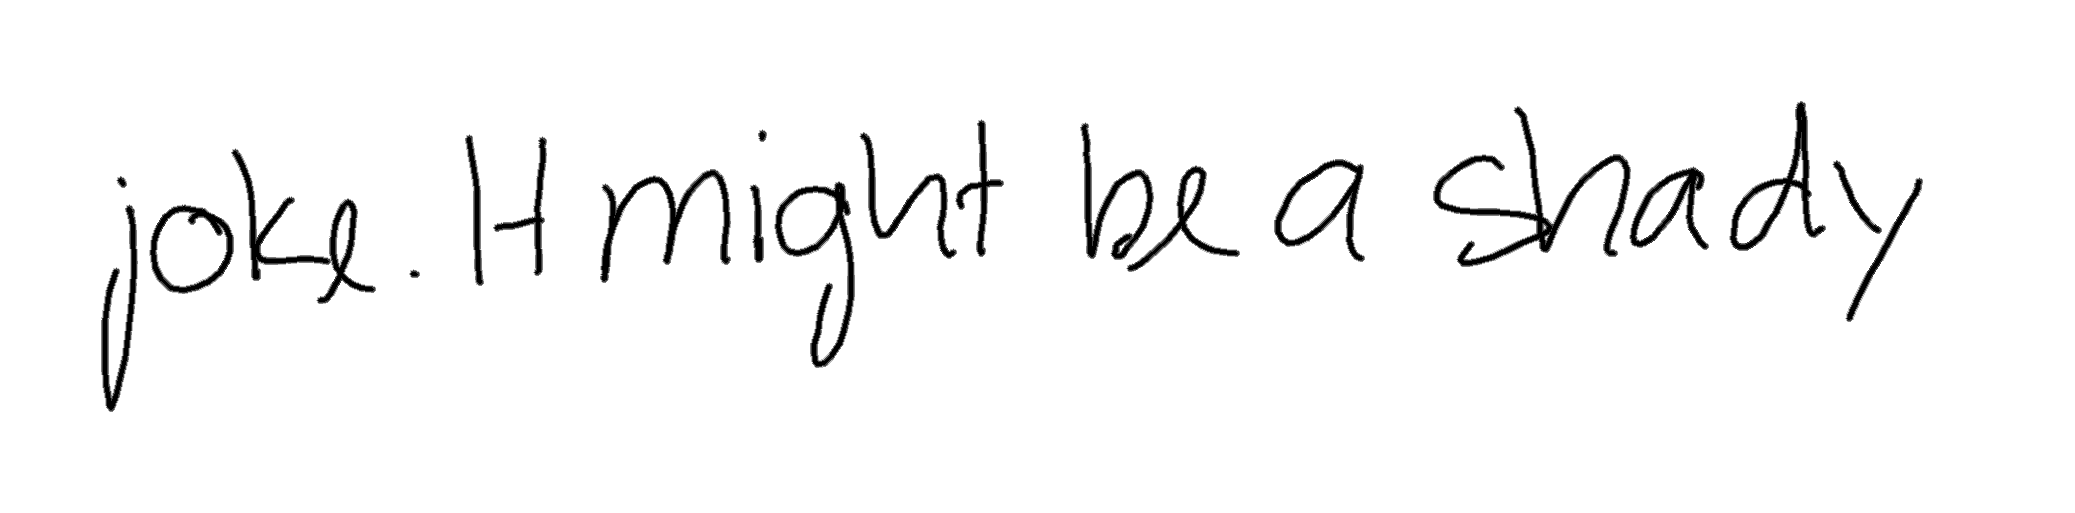 joke. It might be a shady